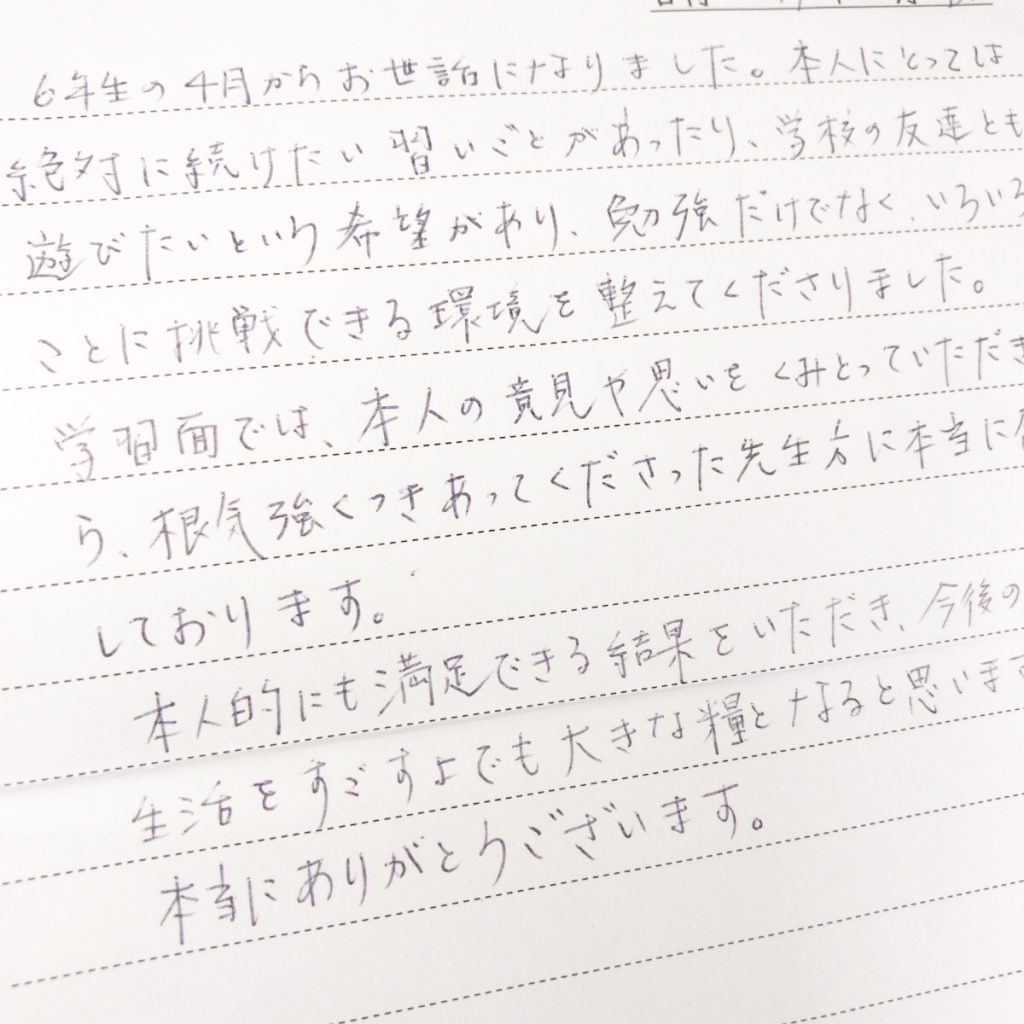 6年生の4月からお世話になりました。本人にとっては
絶対に続けたい習いごとがあったり、学校の友達とも
遊びたいという希望があり、勉強だけでなく、いろいろ
ことに挑戦できる環境を整えてくださりました。
学習面では、本人の意見や思いをくみとっていただき
ら、根気強くつきあってくださった先生方に本当に
しております。
本人的にも満足できる結果をいただき、今後の
生活をすごす上でも大きな糧となると思います
本当にありがとうございます。